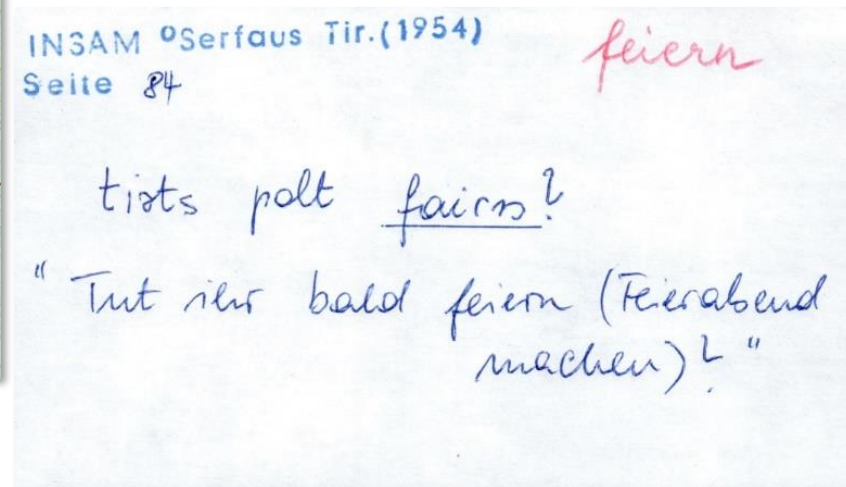 INSAM °Serfaus Tir.(1954)
feiern
Seite 84
tiəts polt fairn?
" Tut ihr bald feiern (Feierabend
machen)? "